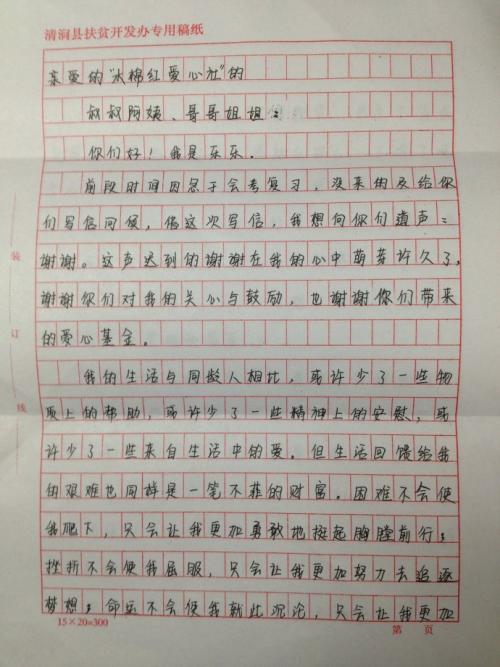 清涧县扶贫开发办专用稿纸
亲爱的"木棉红爱心社"的
叔叔阿姨、哥哥姐姐:
你们好!我是乐乐。
前段时间因忙于会考复习,没来得及给你
们写信问候,借这次写信,我想向你们道声:
谢谢。这声迟到的谢谢在我的心中萌芽许久了,
谢谢你们对我的关心与鼓励,也谢谢你们带来
的爱心基金。
我的生活与同龄人相比,或许少了一些物
质上的帮助,或许少了一些精神上的安慰,或
许少了一些来自生活中的爱。但生活回馈给我
的艰难也同样是一笔不菲的财富。困难不会使
我爬下,只会让我更加勇敢地挺起胸膛前行;
挫折不会使我屈服,只会让我更加努力去追逐
梦想;命运不会使我就此沉沦,只会让我更加
15×20=300
第 页
装
订
线